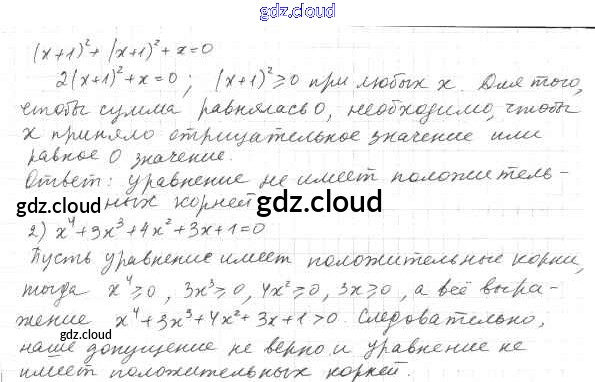 gdz.cloud
(x+1)²+(x+1)²+x=0
2(x+1)²+x=0; (x+1)²≥0 при любых x. Для того,
чтобы сумма равнялась 0, необходимо, чтобы
x приняло отрицательное значение или
равное 0 значение.
Ответ: уравнение не имеет положитель-
ных корней
gdz.cloud gdz.cloud
2) x⁴+3x³+4x²+3x+1=0
Пусть уравнение имеет положительные корни,
тогда x⁴≥0, 3x³≥0, 4x²≥0, 3x≥0, а всё выра-
жение x⁴+3x³+4x²+3x+1>0. Следовательно,
gdz.cloud gdz.cloud
наше допущение не верно и уравнение не
имеет положительных корней.